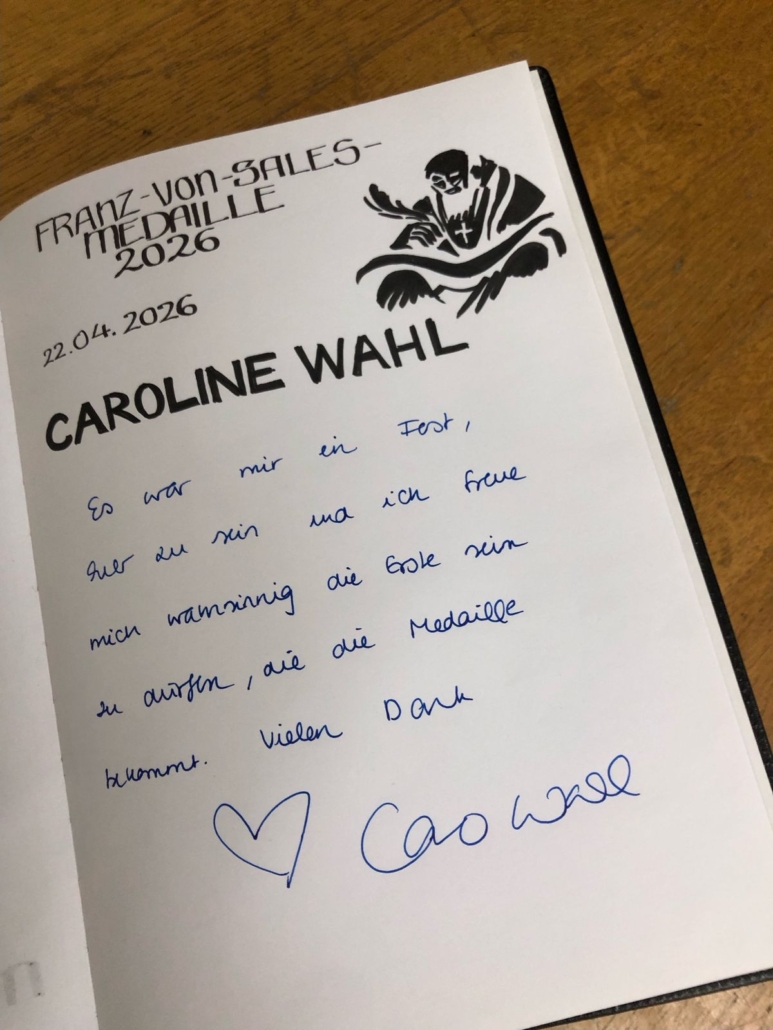 FRANZ-VON-SALES-
MEDAILLE
2026
22.04.2026
CAROLINE WAHL
Es war mir ein Fest,
hier zu sein und ich freue
mich wahnsinnig die Erste sein
zu dürfen, die die Medaille
bekommt. Vielen Dank
Caro Wahl